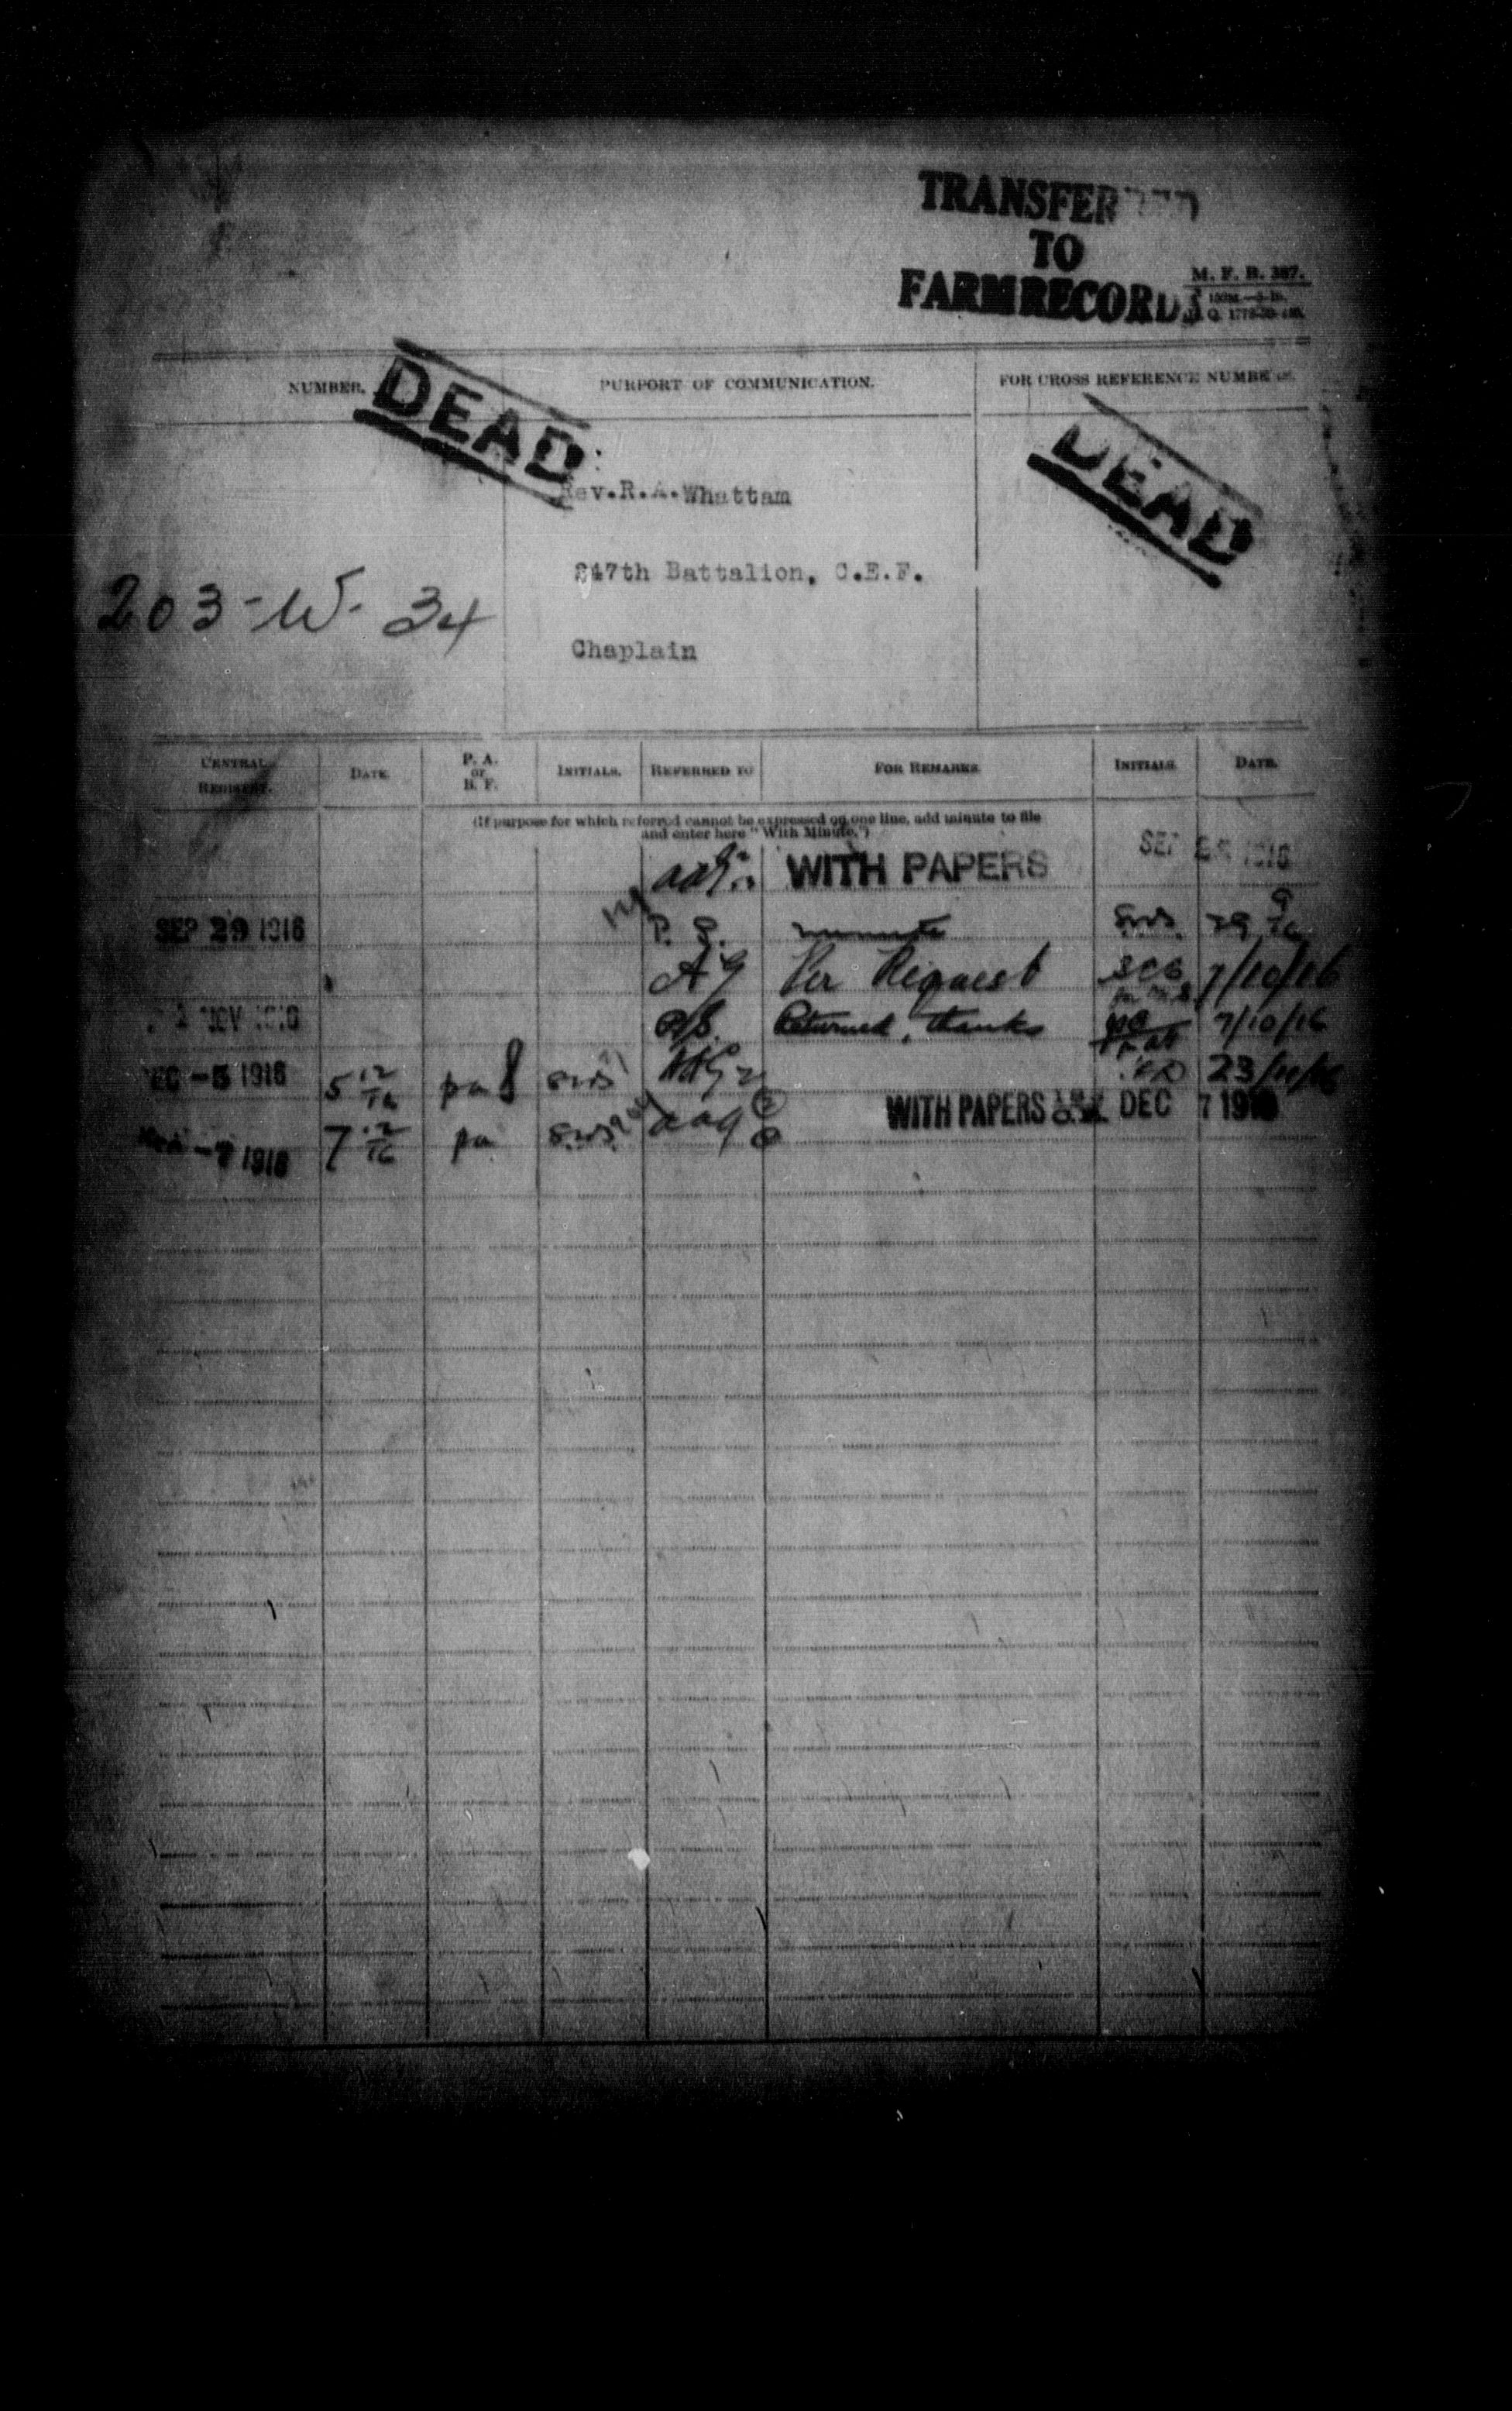 TRANSFERRED
TO
FARM RECORDS
M. F. B. 387.
NUMBER.
PURPORT OF COMMUNICATION.
FOR CROSS REFERENCE NUMBERS.
DEAD
DEAD
Rev.R.A.Whattam
247th Battalion, C.E.F.
203-W-34
Chaplain
CENTRAL REGISTRY.
DATE
P. A. or B. F.
INITIALS.
REFERRED TO
FOR REMARKS
INITIALS.
DATE.
(If purpose for which referred cannot be expressed on one line, add minute to file
and enter here "With Minute.")
WITH PAPERS
SEP 1916
SEP 29 1916 P. S. minute 29 9/16
AG Per Request 7/10/16
NOV Returned, thanks 7/10/16
DEC -5 1916 5 12/16 pa 23/11/16
WITH PAPERS DEC 7 1916
-7 1916 7 12/16 pa aag